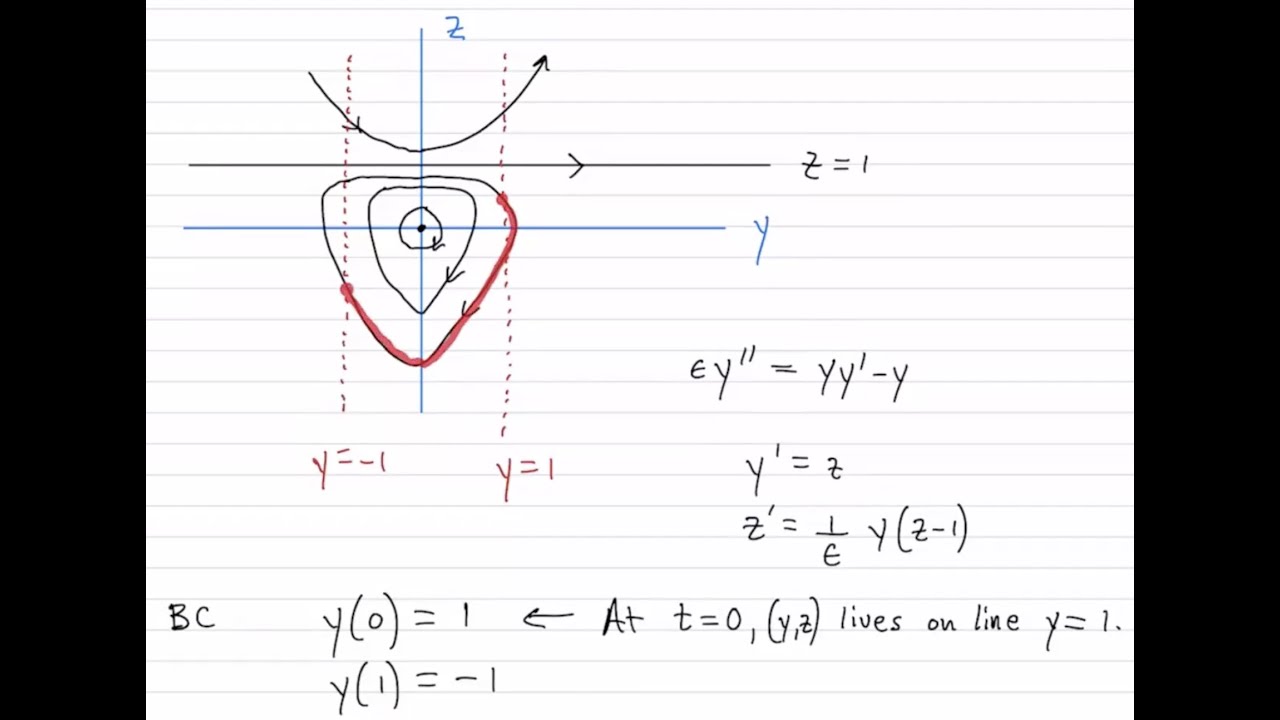 z
z = 1
y
ϵy'' = yy' - y
y = -1
y = 1
y' = z
z' = 1/ϵ y(z-1)
BC y(0) = 1 ← At t=0, (y,z) lives on line y=1.
y(1) = -1